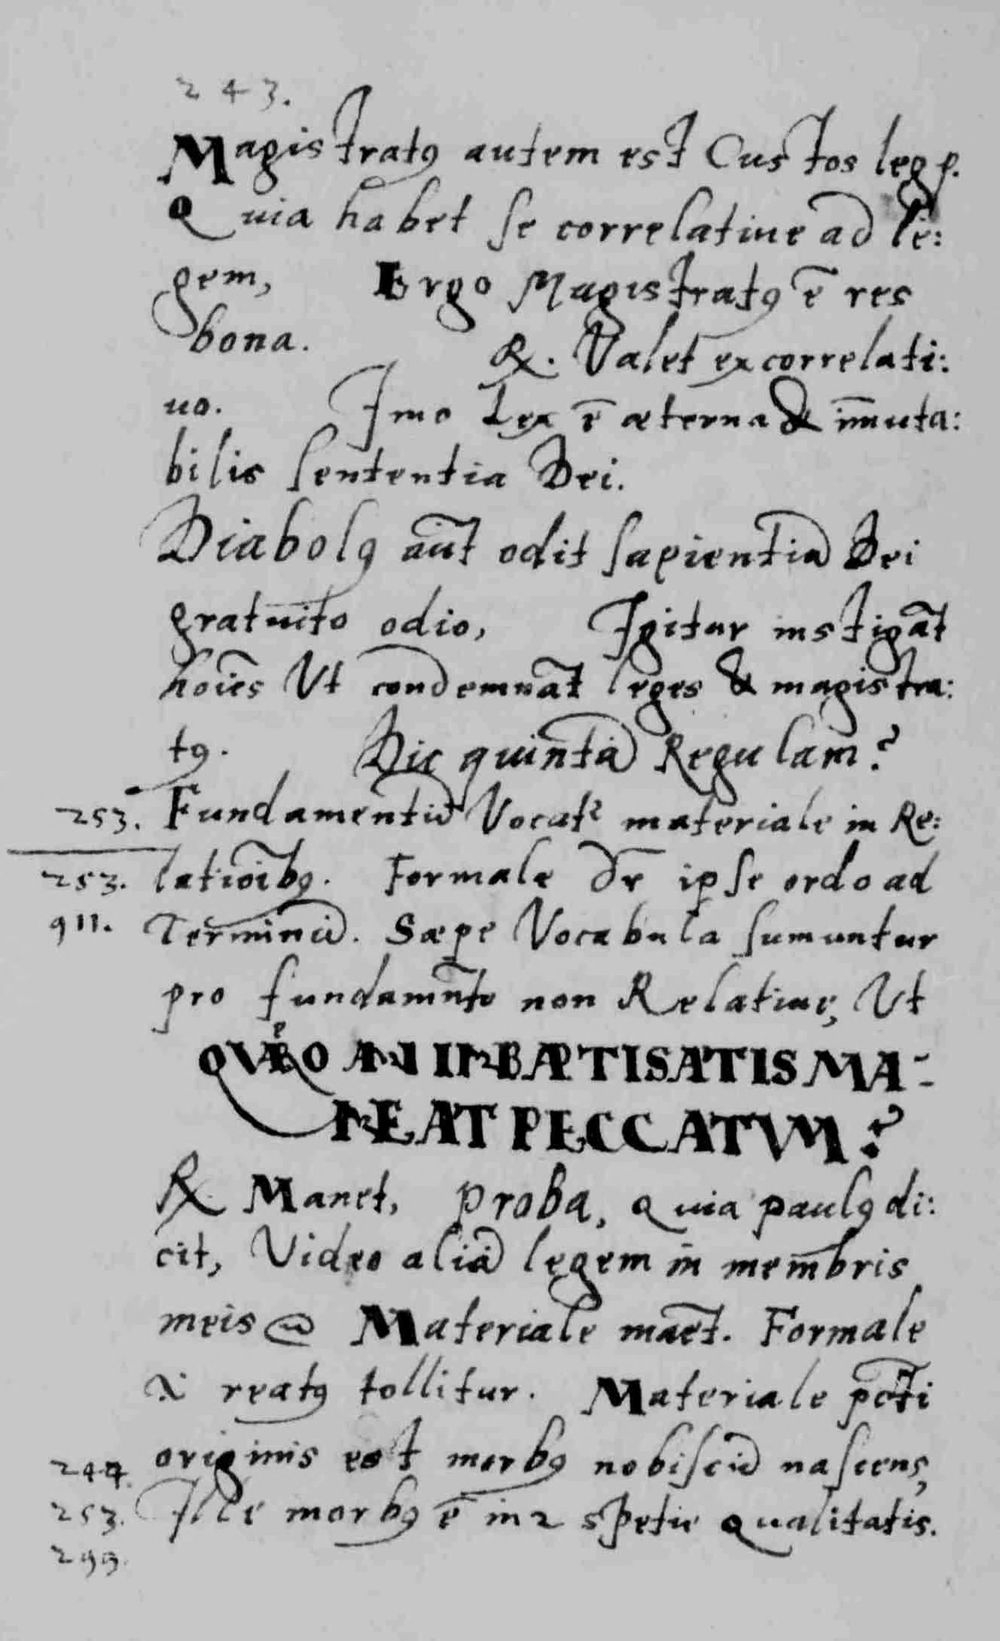 243.
Magistratꝰ autem est Custos legꝭ.
Quia habet se correlatiue ad le:
gem, Ergo Magistratꝰ ē res
bona. ℞. Valet ex correlati:
uo. Imo Lex ē æterna & im̄uta:
bilis sententia Dei.
Diabolꝰ aūt odit sapientiā Dei
gratuito odio, Igitur instigāt
hoīes Vt condemnāt leges & magistra:
tꝰ. Dic quintā Regulam?
253. Fundamentū Vocatᷣ materiale in Re:
253. latioībꝰ. Formale dr̄ ipse ordo ad
911. Terminū. Sæpe Vocabula sumuntur
pro fundamn̄to non Relatiue, Vt
QVÆRO AN IN BAPTISATIS MA-
NEAT PECCATVM?
℞. Manet, proba, Quia paulꝰ di:
cit, Video aliā legem in membris
meis Materiale māet. Formale
i reatꝰ tollitur. Materiale pctī
244. originis est morbꝰ nobiscū nascens,
253. Ille morbꝰ ē in 2 spetie Qualitatis.
299.